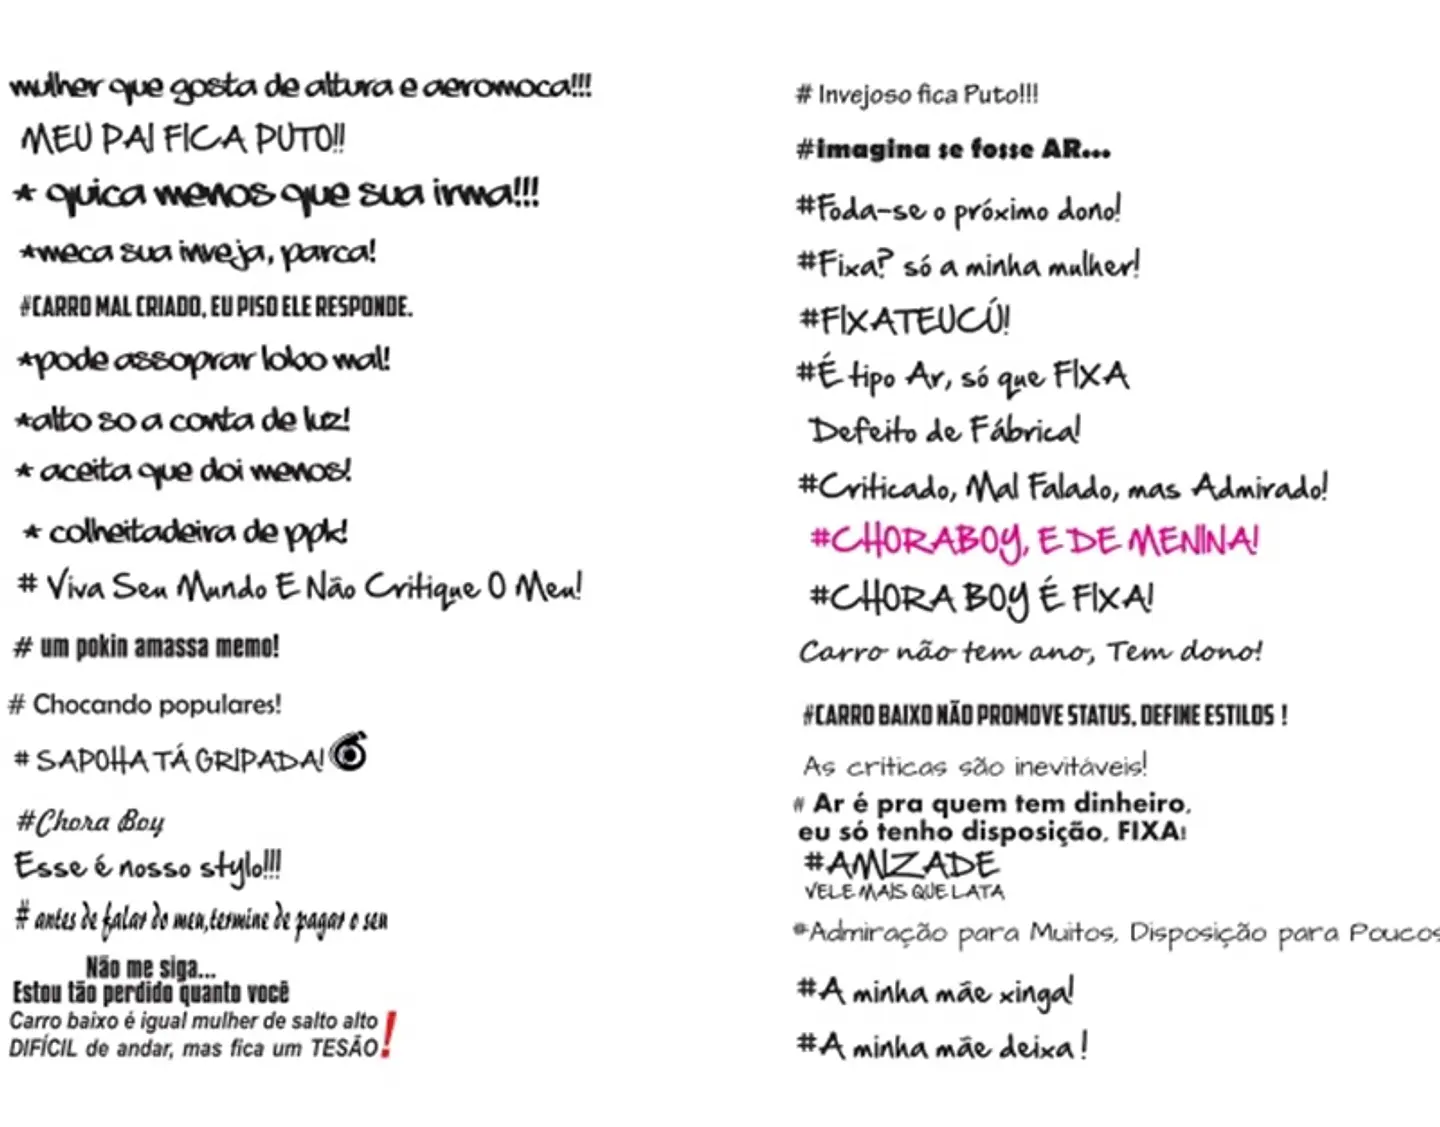 mulher que gosta de altura e aeromoca!!!
MEU PAI FICA PUTO!!
* quica menos que sua irma!!!
*meca sua inveja, parca!
#CARRO MAL CRIADO, EU PISO ELE RESPONDE.
*pode assoprar lobo mal!
*alto so a conta de luz!
* aceita que doi menos!
* colheitadeira de ppk!
# Viva Seu Mundo E Não Critique O Meu!
# um pokin amassa memo!
# Chocando populares!
# SAPOHA TÁ GRIPADA!
#Chora Boy
Esse é nosso stylo!!!
# antes de falar do meu,termine de pagar o seu
Não me siga...
Estou tão perdido quanto você
Carro baixo é igual mulher de salto alto
DIFÍCIL de andar, mas fica um TESÃO!
# Invejoso fica Puto!!!
#imagina se fosse AR...
#Foda-se o próximo dono!
#Fixa? só a minha mulher!
#FIXATEUCÚ!
#É tipo Ar, só que FIXA
Defeito de Fábrica!
#Criticado, Mal Falado, mas Admirado!
#CHORABOY, E DE MENINA!
#CHORA BOY É FIXA!
Carro não tem ano, Tem dono!
#CARRO BAIXO NÃO PROMOVE STATUS, DEFINE ESTILOS !
As criticas são inevitáveis!
# Ar é pra quem tem dinheiro,
eu só tenho disposição, FIXA!
#AMIZADE
VELE MAIS QUE LATA
#Admiração para Muitos, Disposição para Poucos
#A minha mãe xinga!
#A minha mãe deixa!